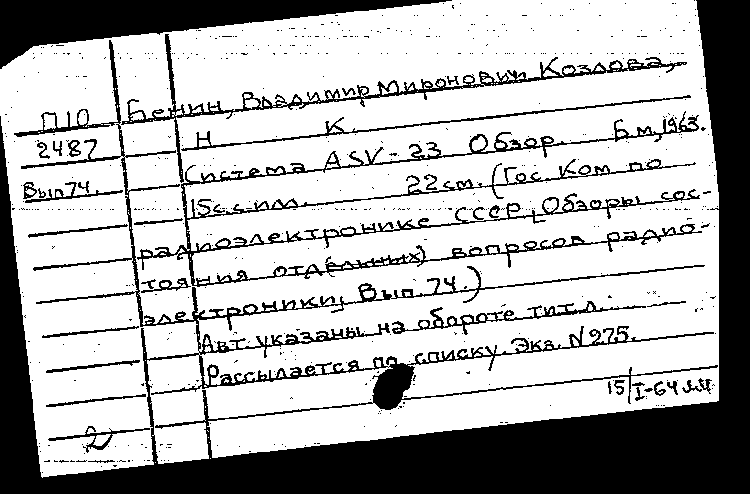 П10 Бенин, Владимир Миронович Козлова,
2487 Н К.
Система ASV-23 Обзор. Б м, 1963.
Вып 74. 15с. с илл. 22 см. (Гос. Ком по
радиоэлектронике СССР, Обзоры сос-
тояния отд(ельных) вопросов радио-
электроники, Вып. 74.)
Авт. указаны на обороте тит. л.
Рассылается по списку. Экз. N275.
15/I-64 мм
2